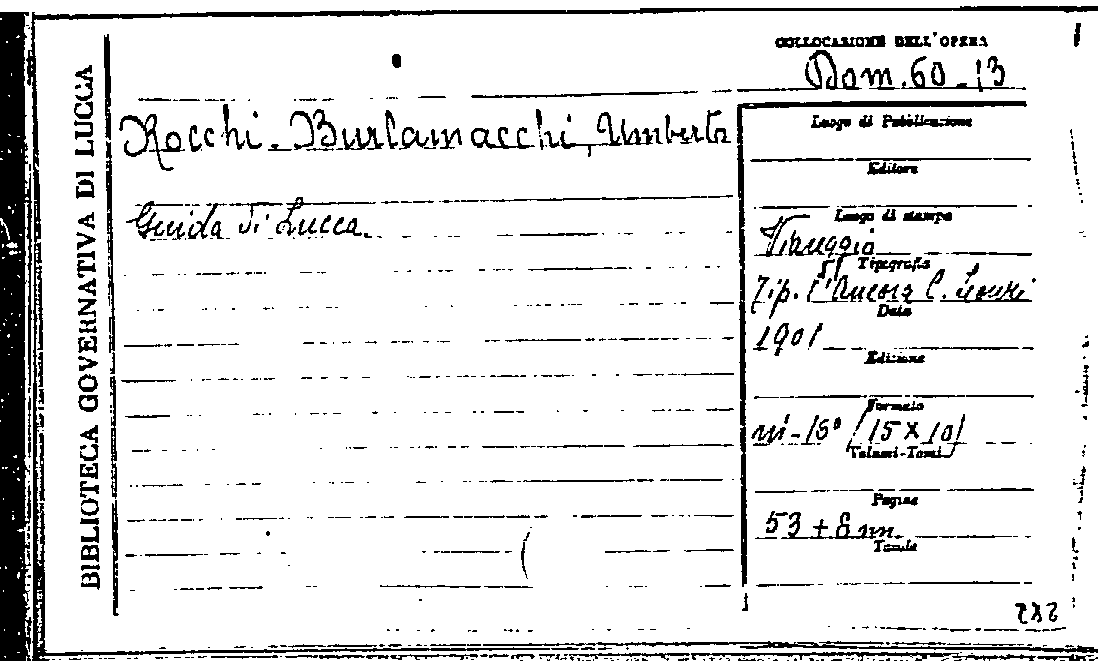 BIBLIOTECA GOVERNATIVA DI LUCCA
COLLOCAZIONE DELL'OPERA
Dom. 60-13
Rocchi-Burlamacchi, Umberto
Guida di Lucca.
Luogo di Pubblicazione
Editore
Luogo di stampa
Viareggio
Tipografia
Tip. l'Ancora C.
Data
1901
Edizione
Formato
in-18° (15 x 10)
Volumi-Tomi
Pagine
53 + 8 nn.
Tavole